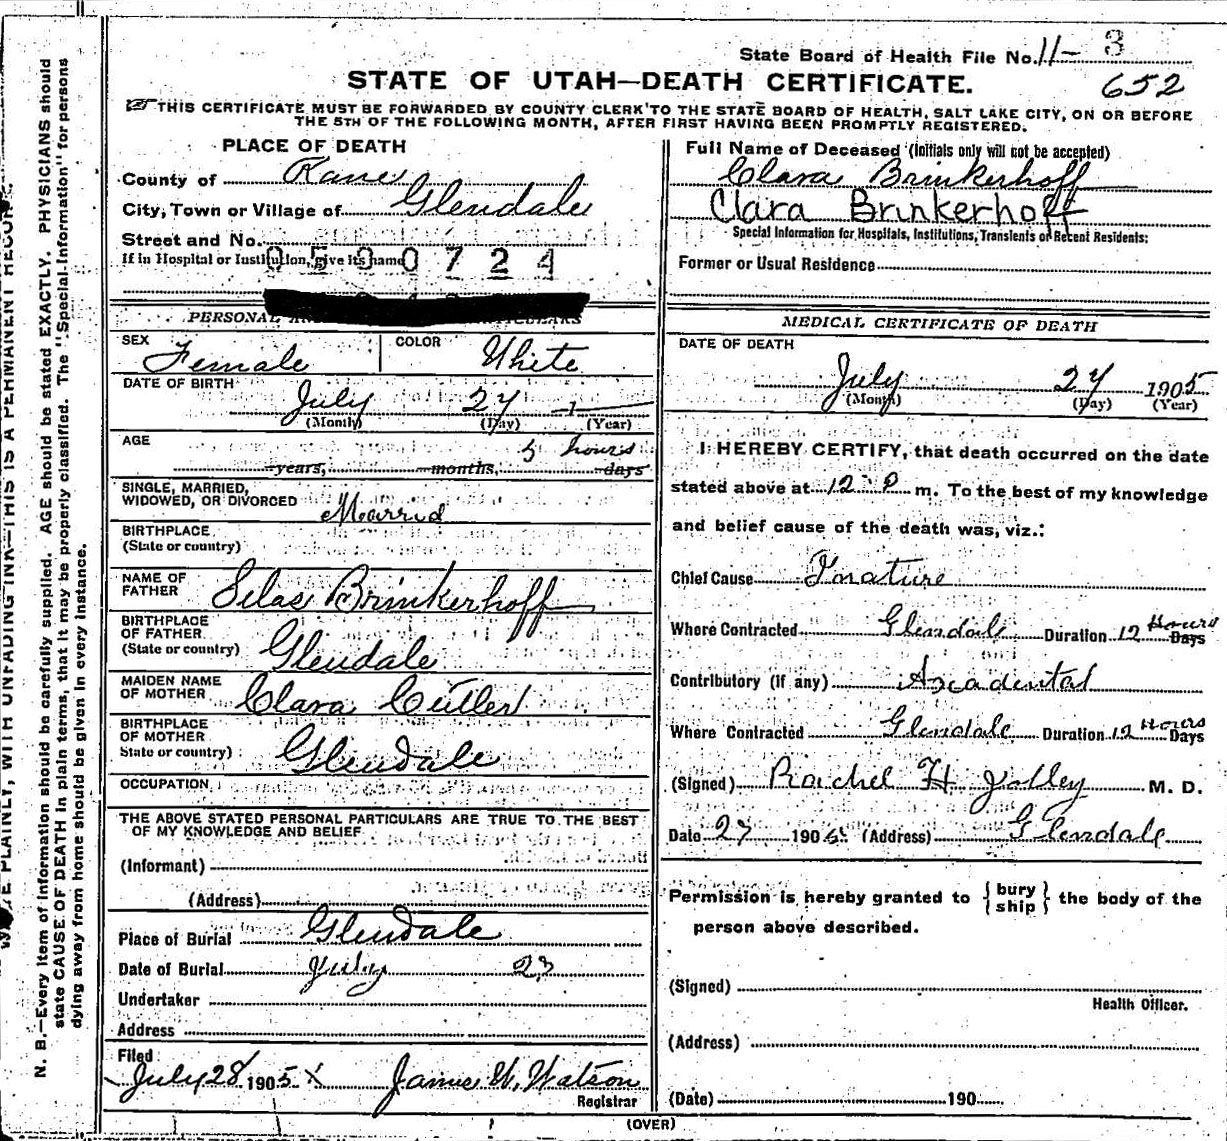 State Board of Health File No. 11- 3
652
STATE OF UTAH—DEATH CERTIFICATE.
THIS CERTIFICATE MUST BE FORWARDED BY COUNTY CLERK TO THE STATE BOARD OF HEALTH, SALT LAKE CITY, ON OR BEFORE
THE 5TH OF THE FOLLOWING MONTH, AFTER FIRST HAVING BEEN PROMPTLY REGISTERED.
PLACE OF DEATH
County of Kane
City, Town or Village of Glendale
Street and No.
If in Hospital or Institution, give its name
0500724
PERSONAL
SEX Female COLOR White
DATE OF BIRTH
July 27
(Month) (Day) (Year)
AGE 5 hours
years, months, days
SINGLE, MARRIED,
WIDOWED, OR DIVORCED Marrid
BIRTHPLACE
(State or country)
NAME OF
FATHER Silas Brinkerhoff
BIRTHPLACE
OF FATHER
(State or country) Glendale
MAIDEN NAME
OF MOTHER Clara Cutler
BIRTHPLACE
OF MOTHER
State or country) Glendale
OCCUPATION
THE ABOVE STATED PERSONAL PARTICULARS ARE TRUE TO THE BEST
OF MY KNOWLEDGE AND BELIEF
(Informant)
(Address)
Place of Burial Glendale
Date of Burial July 27
Undertaker
Address
Filed
July 28 1905 X James W. Watson
Registrar
Full Name of Deceased (initials only will not be accepted)
Clara Brinkerhoff
Clara Brinkerhoff
Special Information for Hospitals, Institutions, Transients or Recent Residents:
Former or Usual Residence
MEDICAL CERTIFICATE OF DEATH
DATE OF DEATH
July 27 1905
(Month) (Day) (Year)
I HEREBY CERTIFY, that death occurred on the date
stated above at 12 P m. To the best of my knowledge
and belief cause of the death was, viz.:
Chief Cause
Where Contracted Glendale Duration 12 Hours Days
Contributory (if any) Axadental
Where Contracted Glendale Duration 12 Hours Days
(Signed) Rachel H Jolley M. D.
Date 27 190 (Address) Glendale
Permission is hereby granted to {bury ship} the body of the
person above described.
(Signed)
Health Officer.
(Address)
(Date) 190
(OVER)
N. B.—Every item of information should be carefully supplied. AGE should be stated EXACTLY. PHYSICIANS should
state CAUSE OF DEATH in plain terms, that it may be properly classified. The "Special Information" for persons
dying away from home should be given in every instance.
PLAINLY, WITH UNFADING INK—THIS IS A PERMANENT RECORD